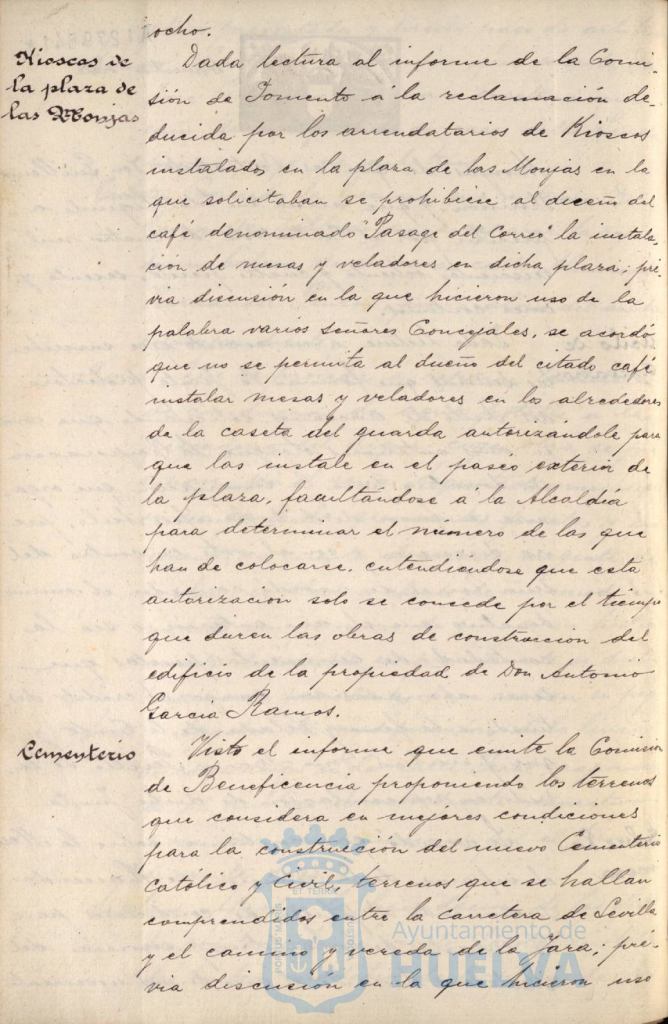 ocho.
Kioscos de
la plaza de
las Monjas
Dada lectura al informe de la Comi-
sión de Fomento á la reclamación de-
ducida por los arrendatarios de Kioscos
instalados en la plaza de las Monjas en la
que solicitaban se prohibiese al dueño del
café denominado "Pasage del Correo" la instala-
ción de mesas y veladores en dicha plaza; pré-
via discusión en la que hicieron uso de la
palabra varios señores Concejales, se acordó
que no se permita al dueño del citado café
instalar mesas y veladores en los alrededores
de la caseta del guarda autorizándole para
que las instale en el paseo exterior de
la plaza, facultándose á la Alcaldía
para determinar el número de las que
han de colocarse, entendiéndose que esta
autorización solo se consede por el tiempo
que duren las obras de construccion del
edificio de la propiedad de Don Antonio
García Ramos.
Cementerio
Visto el informe que emite la Comision
de Beneficencia proponiendo los terrenos
que considera en mejores condiciones
para la construcción del nuevo Cementerio
Católico y Civil, terrenos que se hallan
comprendidos entre la carretera de Sevilla
y el camino y vereda de la Jara; pré-
via discusión en la que hicieron uso
Ayuntamiento de
HUELVA